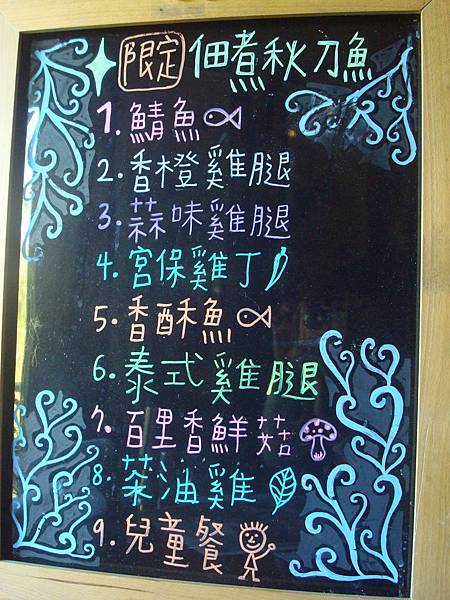 限定 佃煮秋刀魚
1. 鯖魚
2. 香橙雞腿
3. 蒜味雞腿
4. 宮保雞丁
5. 香酥魚
6. 泰式雞腿
7. 百里香鮮菇
8. 茶油雞
9. 兒童餐